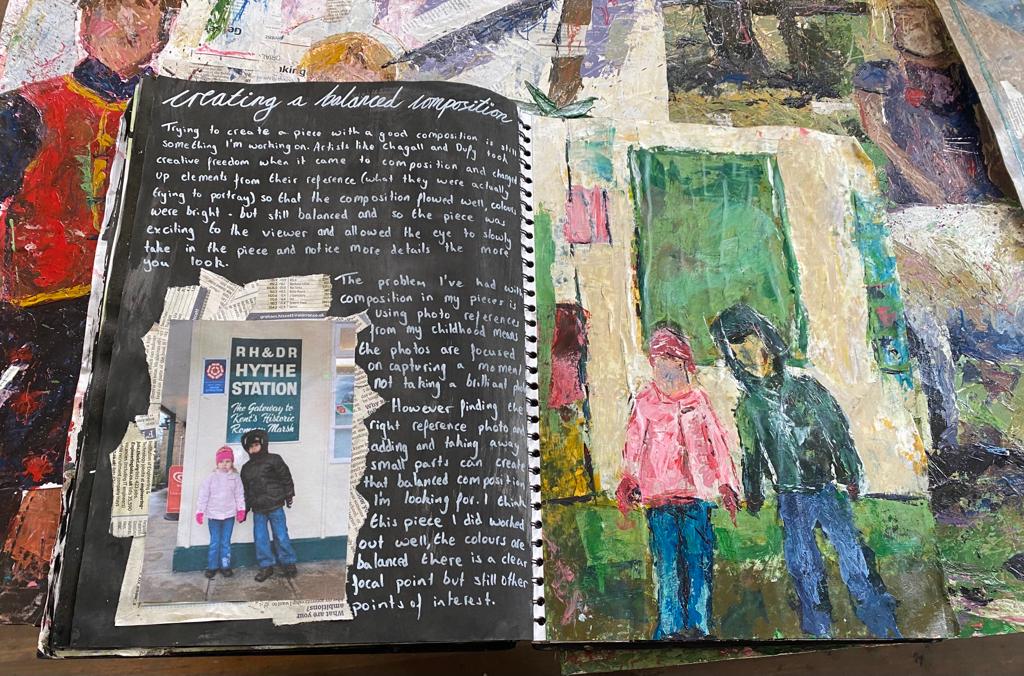 creating a balanced composition
Trying to create a piece with a good composition is still
something I'm working on. Artists like Chagall and Dufy took
creative freedom when it came to composition and changed
up elements from their reference (what they were actually
trying to portray) so that the composition flowed well, colours
were bright - but still balanced and so the piece was
exciting to the viewer and allowed the eye to slowly
take in the piece and notice more details the more
you look.
The problem I've had with
composition in my pieces is
using photo references
from my childhood means
the photos are focused
on capturing a moment
not taking a brilliant
However finding the
right reference photo and
adding and taking away
small parts can create
that balanced composition
I'm looking for. I think
this piece I did worked
out well, the colours are
balanced there is a clear
focal point but still other
points of interest.
RH&DR
HYTHE
STATION
The Gateway to
Kent's Historic
Romney Marsh
What are your
ambitions?